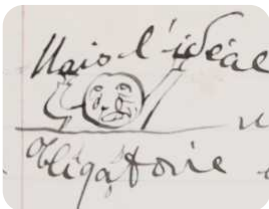 Mais l'idéal
obligatoire